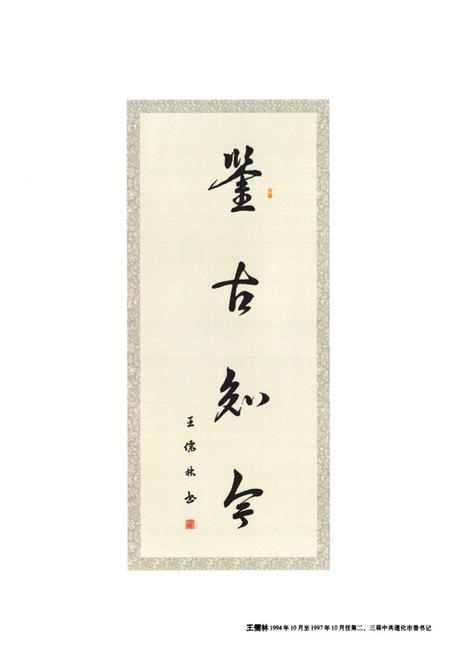 鉴古知今
王儒林书
王儒林 1994年10月至1997年10月任第二、三届中共通化市委书记